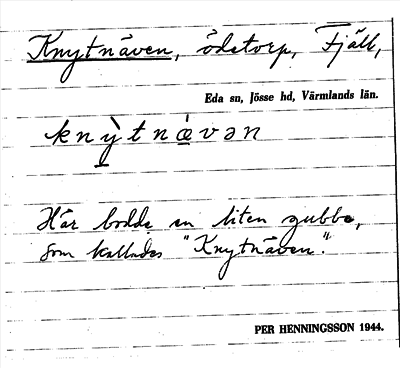 Knytnäven, ödetorp, Fjäll,
Eda sn, Jösse hd, Värmlands län.
knỳtnævən
Här bodde en liten gubbe,
som kallades "Knytnäven".
PER HENNINGSSON 1944.